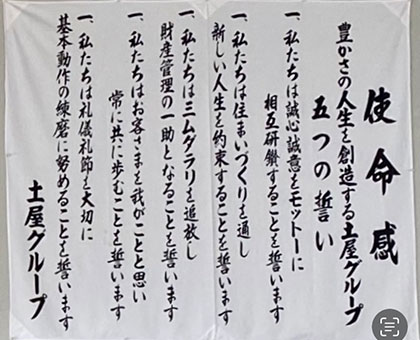 使命感
豊かさの人生を創造する土屋グループ
五つの誓い
一、私たちは誠心誠意をモットーに
相互研鑽することを誓います
一、私たちは住まいづくりを通し
新しい人生を約束することを誓います
一、私たちは三ムダラリを追放し
財産管理の一助となることを誓います
一、私たちはお客さまを我がことと思い
常に共に歩むことを誓います
一、私たちは礼儀礼節を大切に
基本動作の練磨に努めることを誓います
土屋グループ